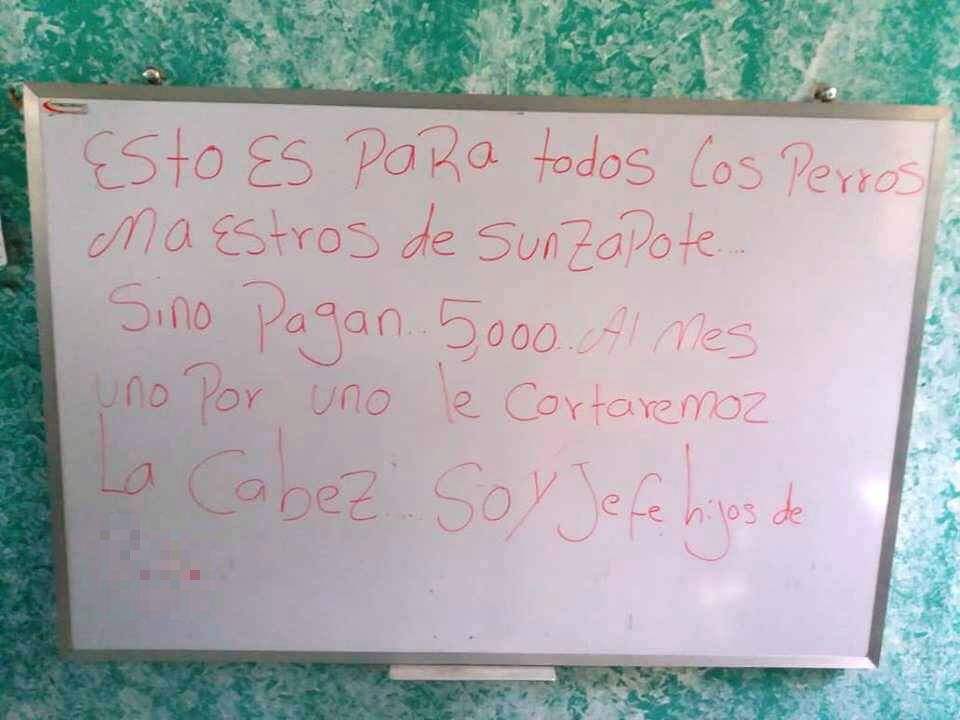 Esto Es PaRa todos los Perros
maEstros de sunzapote...
Sino Pagan.. 5,000.. Al mes
uno Por uno le cortaremoz
La Cabez.... Soy Jefe hijos de